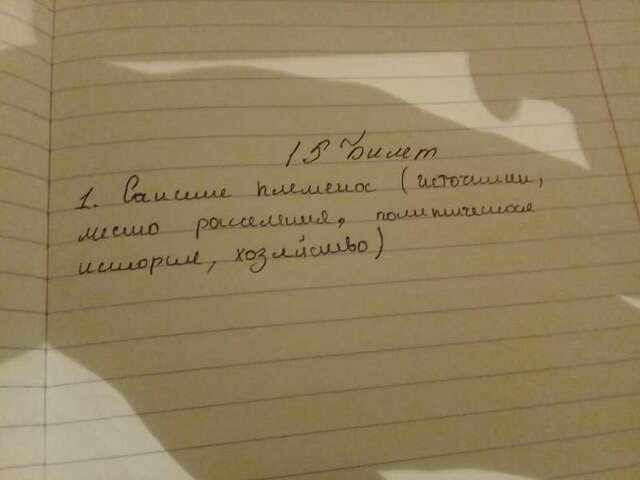 15 билет
1. Сакские племена (источники,
место расселения, политическая
история, хозяйство)